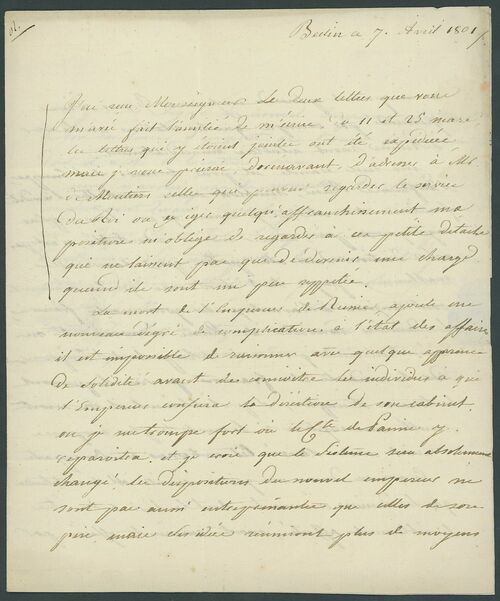 Berlin a 7. Avril 1801
J'ai reçu Monseigneur Le deux lettres que vous
m'avez fait l'amitié de m'écrire a 11 et 25 mars
les lettres qui y etoient jointes ont été expediées
mais je vous prierai dorenavant d'adresser à Mr
de Moutiers celles qui peuvent regarder le service
du Roi ou exiger quelqu'affranchissement ma
position m'oblige de regarder à ces petits details
qui ne laissent pas que de devenir une charge
quand ils sont un peu repetés.
La mort de l'Empereur de Russie, ajoute un
nouveau degré de complication a l'état des affaires
il est impossible de raisonner avec quelque apparence
de solidité avant de connoitre les individus a qui
l'Empereur confiera la direction de son cabinet.
ou je me trompe fort ou le Cte de Panin y
reparoitra. et je crois que le sisteme sera absolument
changé les dispositions du nouvel empereur ne
sont pas aussi entreprenantes que celles de son
pere, mais ses idées reuniront plus de moyens